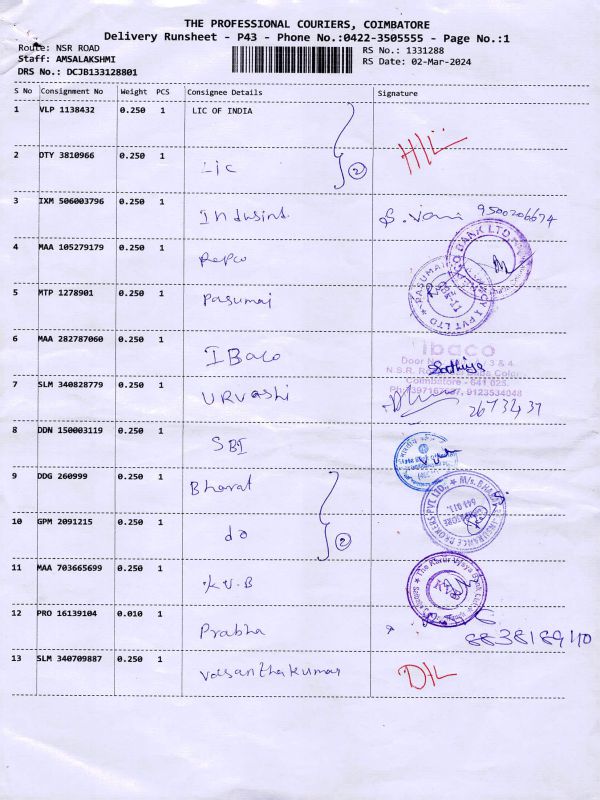 THE PROFESSIONAL COURIERS, COIMBATORE
Delivery Runsheet - P43 - Phone No.:0422-3505555 - Page No.:1
Route: NSR ROAD
RS No.: 1331288
Staff: AMSALAKSHMI
RS Date: 02-Mar-2024
DRS No.: DCJB133128801
S No Consignment No Weight PCS Consignee Details Signature
1 VLP 1138432 0.250 1 LIC OF INDIA
2 DTY 3810966 0.250 1 LIC 2
3 IXM 506003796 0.250 1 Indusind S. Vani 9500206674
4 MAA 105279179 0.250 1 Repco
BANK LTD
5 MTP 1278901 0.250 1 Pasumai
PASUMAI PVT LTD
6 MAA 282787060 0.250 1 IBaco
ibaco
Door No 3 & 4
N.S.R. Colony
Coimbatore - 641 025.
9123534048
7 SLM 340828779 0.250 1 URvashi 2673437
8 DDN 150003119 0.250 1 SBI
9 DDG 260999 0.250 1 Bharat
M/s. BHARAT INSURANCE BROKERS PVT LTD.,
10 GPM 2091215 0.250 1 do 2
11 MAA 703665699 0.250 1 K.V.B
The Karur Vysya Bank
12 PRO 16139104 0.010 1 Prabha 8838189410
13 SLM 340709887 0.250 1 Vasanthakumar D/L